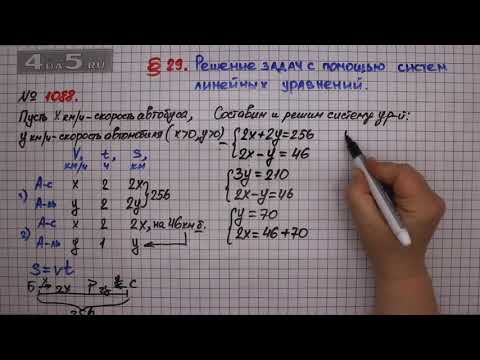 4 на 5.RU
§ 29. Решение задач с помощью систем линейных уравнений.
№ 1088.
Пусть x км/ч-скорость автобуса,
y км/ч-скорость автомобиля (x>0, y>0)
V, км/ч t, ч S, км
1) А-с x 2 2x } 256
А-ль y 2 2y
2) А-с x 2 2x, на 46 км б.
А-ль y 1 y
S=vt
Б 2x P 2y С
256
Составим и решим систему ур-й:
2x+2y=256
2x-y=46
3y=210
2x-y=46
y=70
2x=46+70